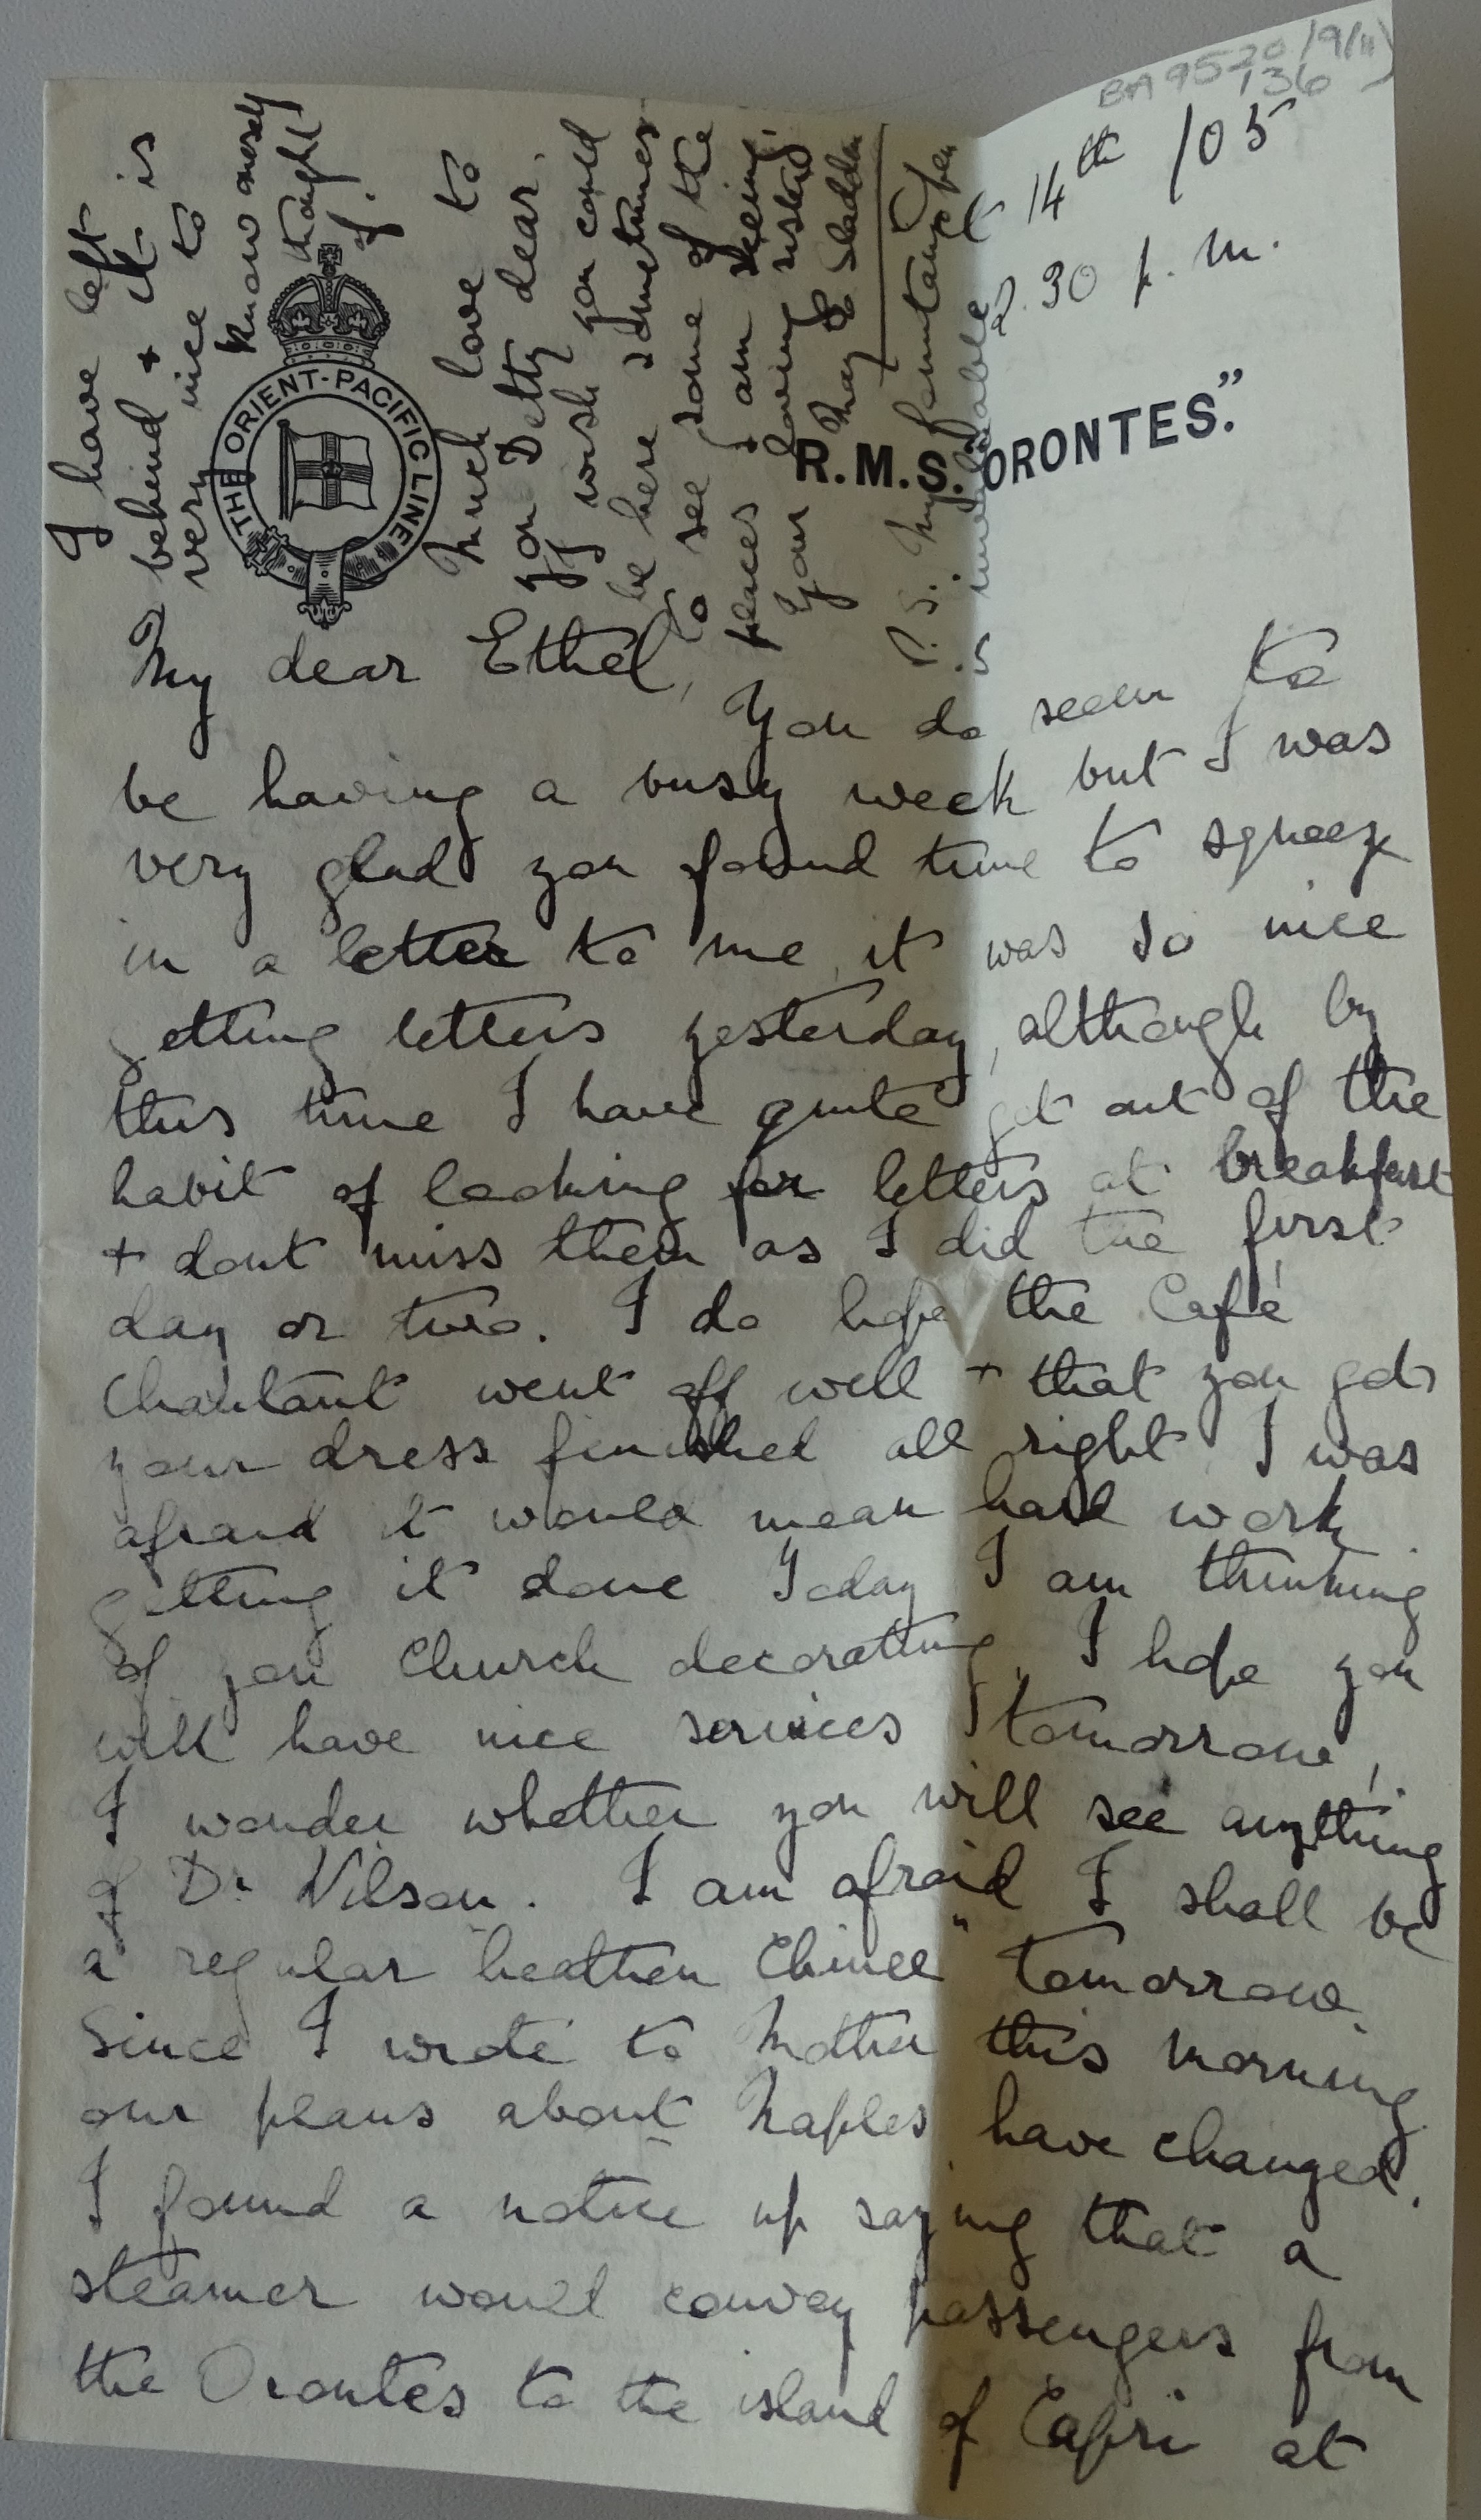 BA9520/9/(ii)
136
14th /05
2.30 p.m.
THE ORIENT-PACIFIC LINE
R.M.S. "ORONTES."
My dear Ethel,
You do seem to
be having a busy week but I was
very glad you found time to squeeze
in a letter to me, it was so nice
getting letters yesterday, although by
this time I have quite got out of the
habit of looking for letters at breakfast
+ dont miss them as I did the first
day or two. I do hope the Café
Chantant went off well + that you got
your dress finished all right I was
afraid it would mean hard work
getting it done Today I am thinking
of you Church decorating, I hope you
will have nice services tomorrow,
I wonder whether you will see anything
of Dr Wilson. I am afraid I shall be
a regular "heathen Chinee" tomorrow.
Since I wrote to Mother this morning
our plans about Naples have changed.
I found a notice up saying that a
steamer would convey passengers from
the Orontes to the island of Capri at
I have left
behind + it is
very nice to
know oneself
thought
of.
Much love to
you Betty dear.
I wish you could
be here sometimes
to see some of the
places I am seeing.
Your loving sister
May E Sladden
P.S. My fountain pen
is invaluable